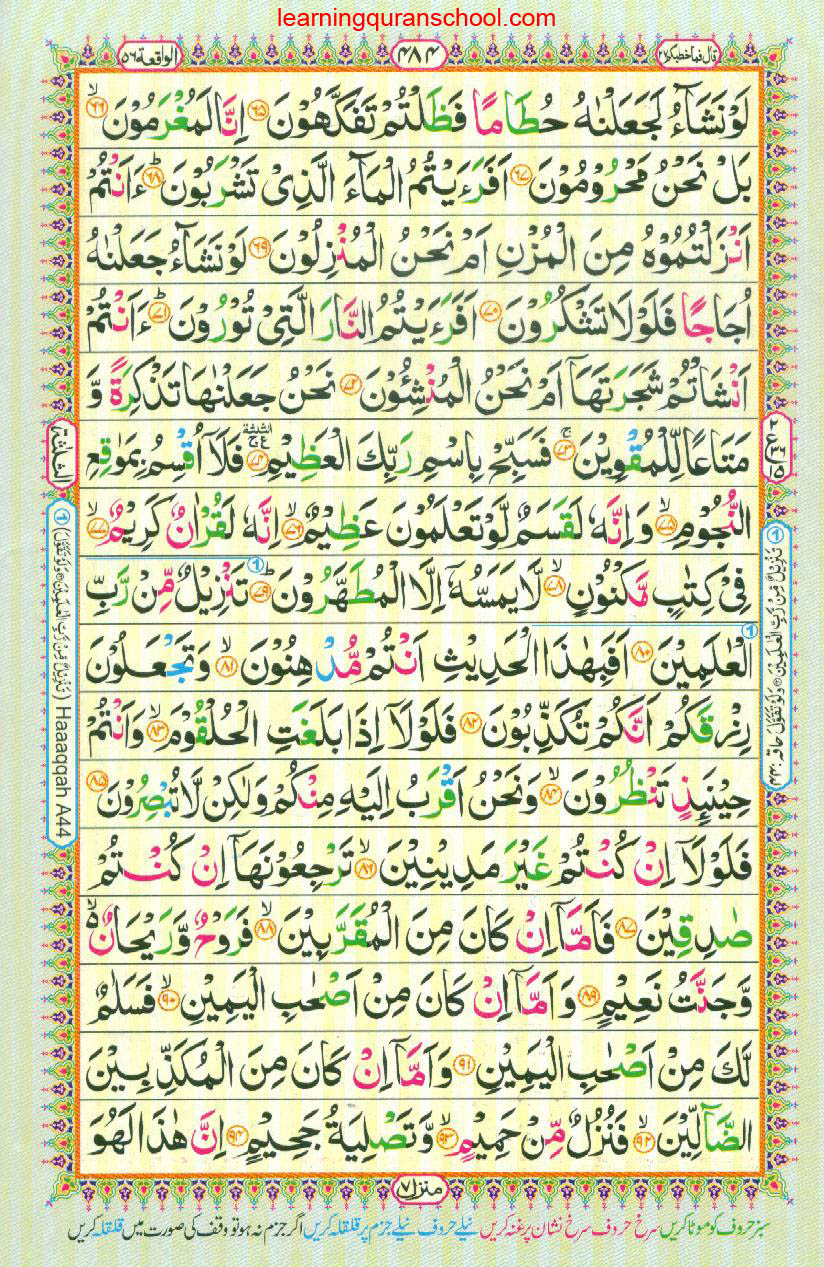 learningquranschool.com
قال فما خطبکم ۲۷
۴۸۴
الواقعة ۵۶
لَوْ نَشَآءُ لَجَعَلْنٰهُ حُطَامًا فَظَلْتُمْ تَفَكَّهُوْنَ ۶۵ اِنَّا لَمُغْرَمُوْنَ ۶۶
بَلْ نَحْنُ مَحْرُوْمُوْنَ ۶۷ اَفَرَءَيْتُمُ الْمَآءَ الَّذِيْ تَشْرَبُوْنَ ۶۸ ءَاَنْتُمْ
اَنْزَلْتُمُوْهُ مِنَ الْمُزْنِ اَمْ نَحْنُ الْمُنْزِلُوْنَ ۶۹ لَوْ نَشَآءُ جَعَلْنٰهُ
اُجَاجًا فَلَوْلَا تَشْكُرُوْنَ ۷۰ اَفَرَءَيْتُمُ النَّارَ الَّتِيْ تُوْرُوْنَ ۷۱ ءَاَنْتُمْ
اَنْشَاْتُمْ شَجَرَتَهَآ اَمْ نَحْنُ الْمُنْشِـُٔوْنَ ۷۲ نَحْنُ جَعَلْنٰهَا تَذْكِرَةً وَّ
مَتَاعًا لِّلْمُقْوِيْنَ ۷۳ فَسَبِّحْ بِاسْمِ رَبِّكَ الْعَظِيْمِ ۷۴ فَلَآ اُقْسِمُ بِمَوٰقِعِ
النُّجُوْمِ ۷۵ وَاِنَّهٗ لَقَسَمٌ لَّوْ تَعْلَمُوْنَ عَظِيْمٌ ۷۶ اِنَّهٗ لَقُرْاٰنٌ كَرِيْمٌ ۷۷
فِيْ كِتٰبٍ مَّكْنُوْنٍ ۷۸ لَّا يَمَسُّهٗٓ اِلَّا الْمُطَهَّرُوْنَ ۷۹ تَنْزِيْلٌ مِّنْ رَّبِّ
الْعٰلَمِيْنَ ۸۰ اَفَبِهٰذَا الْحَدِيْثِ اَنْتُمْ مُّدْهِنُوْنَ ۸۱ وَتَجْعَلُوْنَ
رِزْقَكُمْ اَنَّكُمْ تُكَذِّبُوْنَ ۸۲ فَلَوْلَآ اِذَا بَلَغَتِ الْحُلْقُوْمَ ۸۳ وَاَنْتُمْ
حِيْنَئِذٍ تَنْظُرُوْنَ ۸۴ وَنَحْنُ اَقْرَبُ اِلَيْهِ مِنْكُمْ وَلٰكِنْ لَّا تُبْصِرُوْنَ ۸۵
فَلَوْلَآ اِنْ كُنْتُمْ غَيْرَ مَدِيْنِيْنَ ۸۶ تَرْجِعُوْنَهَآ اِنْ كُنْتُمْ
صٰدِقِيْنَ ۸۷ فَاَمَّآ اِنْ كَانَ مِنَ الْمُقَرَّبِيْنَ ۸۸ فَرَوْحٌ وَّرَيْحَانٌ
وَّجَنَّتُ نَعِيْمٍ ۸۹ وَاَمَّآ اِنْ كَانَ مِنْ اَصْحٰبِ الْيَمِيْنِ ۹۰ فَسَلٰمٌ
لَّكَ مِنْ اَصْحٰبِ الْيَمِيْنِ ۹۱ وَاَمَّآ اِنْ كَانَ مِنَ الْمُكَذِّبِيْنَ
الضَّآلِّيْنَ ۹۲ فَنُزُلٌ مِّنْ حَمِيْمٍ ۹۳ وَّتَصْلِيَةُ جَحِيْمٍ ۹۴ اِنَّ هٰذَا لَهُوَ
منزل ۷
سبز حروف کو موٹا کریں سرخ حروف سرخ نشان پر غنہ کریں نیلے حروف نیلے جزم پر قلقلہ کریں اگر جزم نہ ہو تو وقف کی صورت میں قلقلہ کریں
الثلثة
① (تَنْزِيْلٌ مِّنْ رَّبِّ الْعٰلَمِيْنَ ۞ وَلَوْ تَقَوَّلَ) Haaaqqah A44
① تَنْزِيْلٌ مِّنْ رَّبِّ الْعٰلَمِيْنَ ۞ وَلَوْ تَقَوَّلَ حاقہ :۴۴